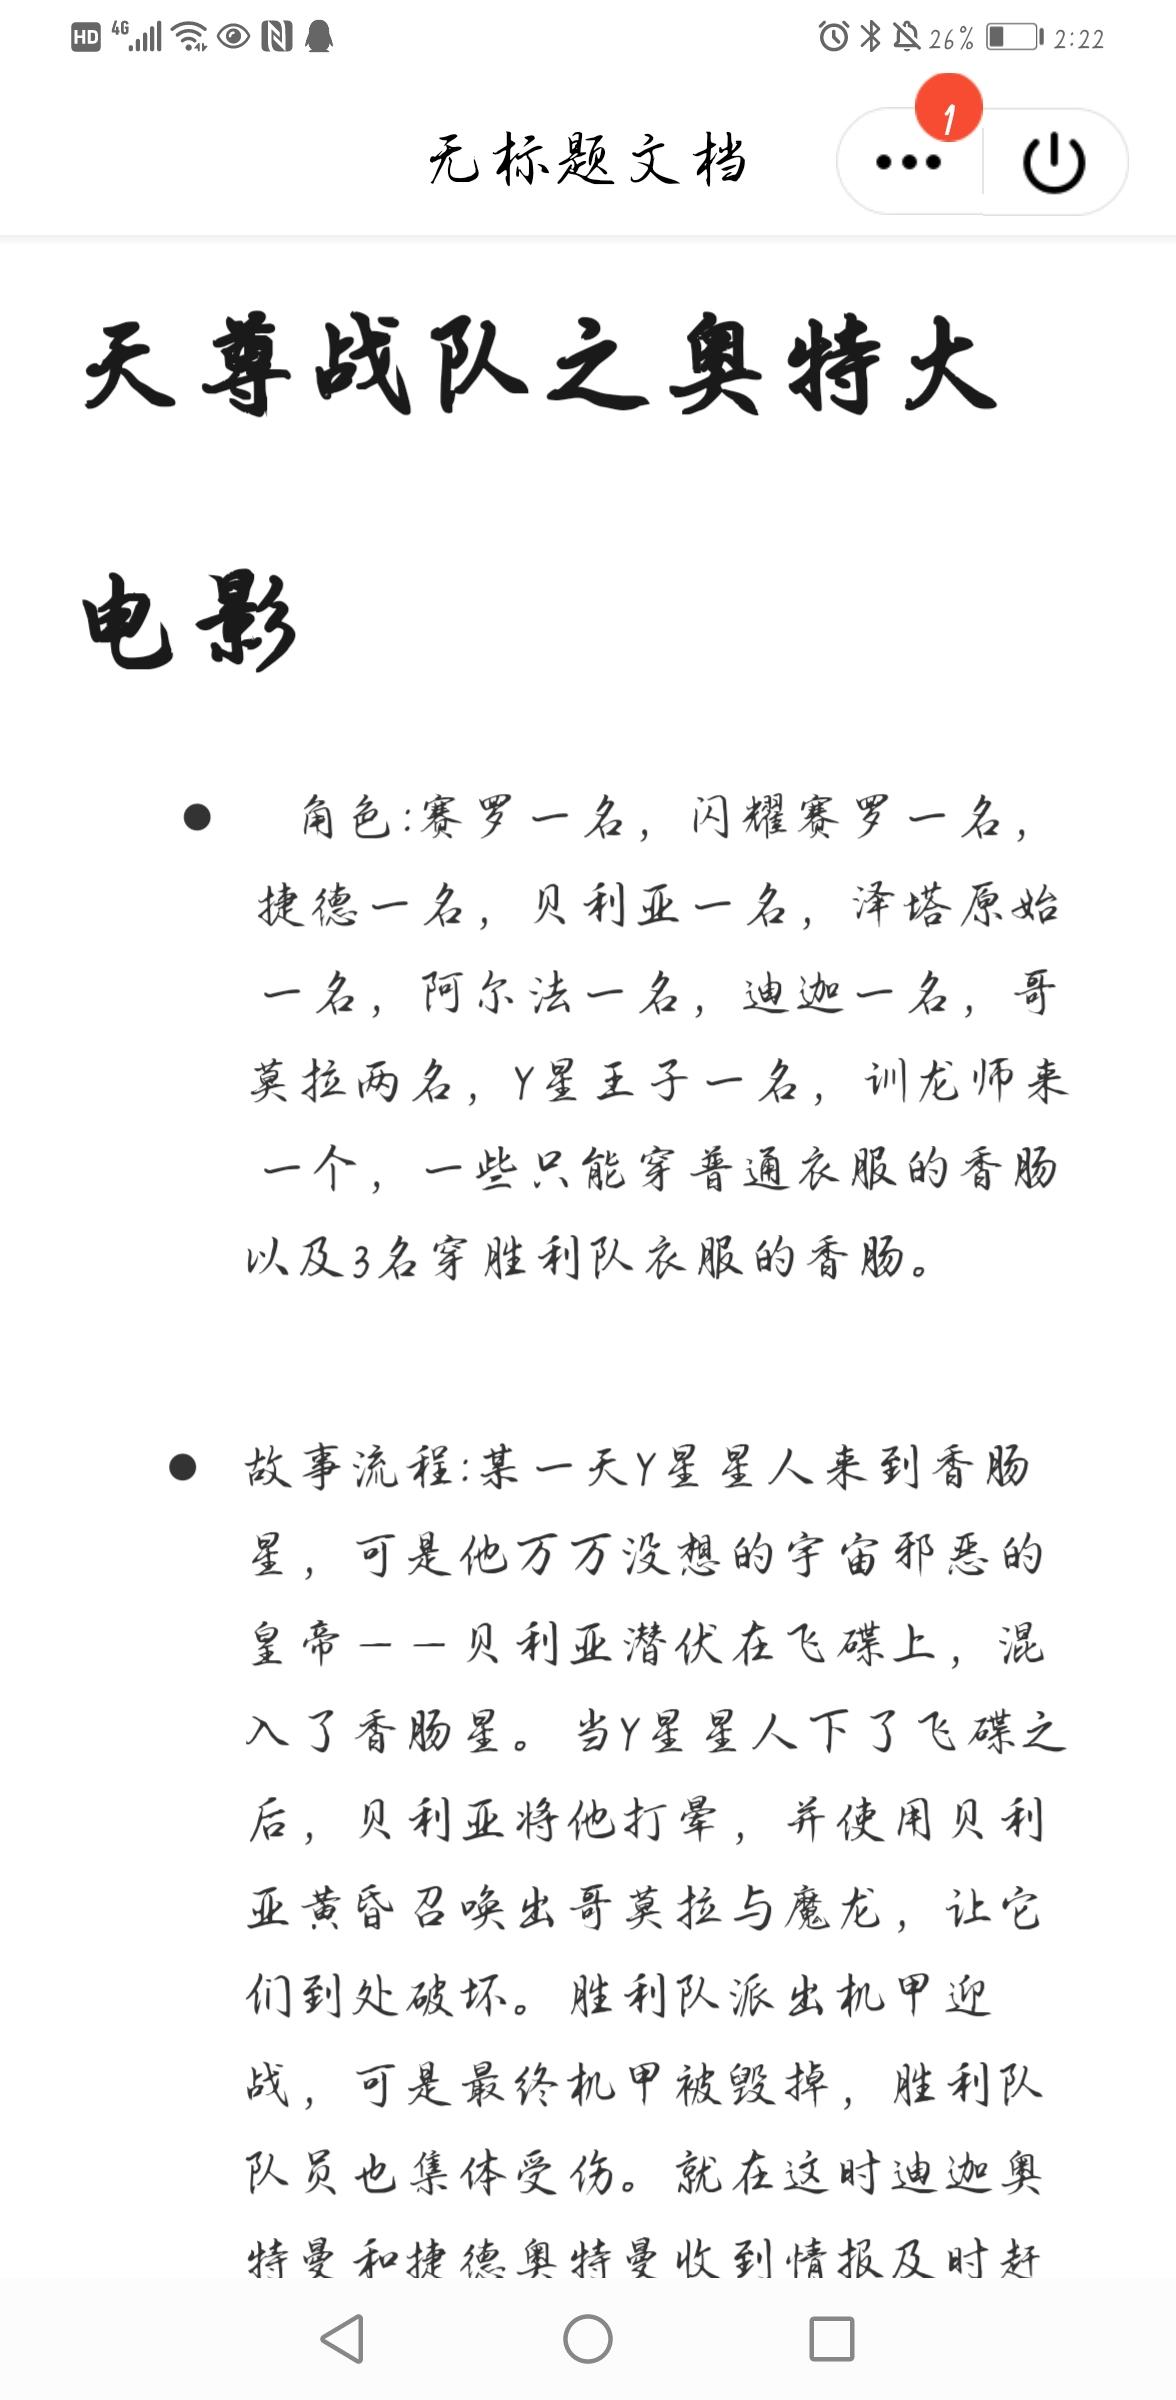 HD 4G 26% 2:22
1
无标题文档
天尊战队之奥特大
电影
角色:赛罗一名，闪耀赛罗一名，
捷德一名，贝利亚一名，泽塔原始
一名，阿尔法一名，迪迦一名，哥
莫拉两名，Y星王子一名，训龙师来
一个，一些只能穿普通衣服的香肠
以及3名穿胜利队衣服的香肠。
故事流程:某一天Y星星人来到香肠
星，可是他万万没想的宇宙邪恶的
皇帝——贝利亚潜伏在飞碟上，混
入了香肠星。当Y星星人下了飞碟之
后，贝利亚将他打晕，并使用贝利
亚黄昏召唤出哥莫拉与魔龙，让它
们到处破坏。胜利队派出机甲迎
战，可是最终机甲被毁掉，胜利队
队员也集体受伤。就在这时迪迦奥
特曼和捷德奥特曼收到情报及时赶